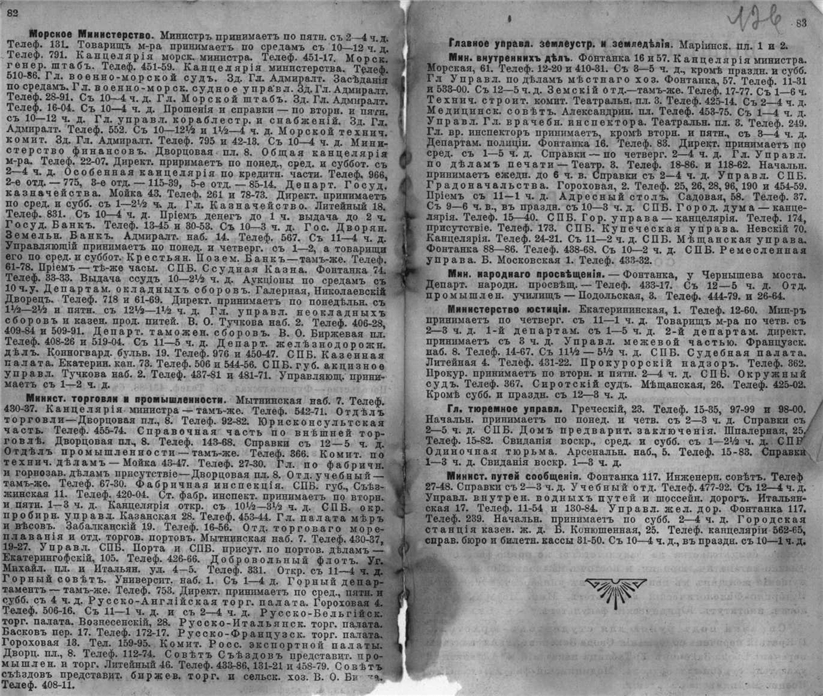 82
Морское Министерство. Министръ принимаетъ по пятн. съ 2—4 ч. д.
Телеф. 131. Товарищъ м-ра принимаетъ по средамъ съ 10—12 ч. д.
Телеф. 791. Канцелярія морск. министра. Телеф. 451-17. Морск.
генер. штабъ. Телеф. 451-59. Канцелярія министерства. Телеф.
510-86. Гл. военно-морской судъ. Зд. Гл. Адмиралт. Засѣданія
по средамъ. Гл. военно-морск. судное управл. Зд. Гл. Адмиралт.
Телеф. 28-91. Съ 10—4 ч. д. Гл. Морской штабъ. Зд. Гл. Адмиралт.
Телеф. 16-04. Съ 10—4 ч. д. Прошенія и справки — по вторн. и пятн.
съ 10—12 ч. д. Гл. управл. кораблестр. и снабженій. Зд. Гл.
Адмиралт. Телеф. 552. Съ 10—12½ и 1½—4 ч. д. Морской технич.
комит. Зд. Гл. Адмиралт. Телеф. 795 и 42-13. Съ 10—4 ч. д. Мини-
стерство финансовъ. Дворцовая пл. 8. Общая канцелярія
м-ра. Телеф. 22-07. Директ. приримаетъ по понед., сред. и суббот. съ
2—4 ч. д. Особенная канцелярія по кредитн. части. Телеф. 966,
2-е отд. — 775, 3-е отд. — 115-39, 5-е отд. — 85-14. Департ. Госуд.
казначейства. Мойка 43. Телеф. 261 и 78-73. Директ. принимаетъ
по сред. и субб. съ 1—2½ ч. д. Гл. Казначейство. Литейный 18.
Телеф. 831. Съ 10—4 ч. д. Пріемъ денегъ до 1 ч. выдача до 2 ч.
Госуд. Банкъ. Телеф. 13-45 и 30-53. Съ 10—3 ч. д. Гос. Дворян.
Земельн. Банкъ. Адмиралт. наб. 14. Телеф. 567. Съ 11—4 ч. д.
Управляющій принимаетъ по понед. и четверг. съ 1—2, а товарищи
его по сред. и суббот. Крестьян. Позем. Банкъ—тамъ-же. Телеф.
61-78. Пріемъ — тѣ-же часы. СПБ. Ссудная Казна. Фонтанка 74.
Телеф. 33-33. Выдача ссудъ 10—2½ ч. д. Аукціоны по средамъ съ
10 ч. у. Департам. окладныхъ сборовъ. Галерная, Николаевскій
Дворецъ. Телеф. 718 и 61-69. Директ. принимаетъ по понедѣльн. съ
1½—2½ и пятн. съ 12½—1½ ч. д. Гл. управл. неокладныхъ
сборовъ и казен. прод. питей. В. О. Тучкова наб. 2. Телеф. 406-28,
409-84 и 509-91. Департ. таможен. сборовъ. В. О. Биржевая пл.
Телеф. 408-26 и 519-04. Съ 11—5 ч. д. Департ. желѣзнодорожн.
дѣлъ. Конногвард. бульв. 19. Телеф. 976 и 450-47. СПБ. Казенная
палата. Екатерин. кан. 73. Телеф. 506 и 544-56. СПБ. губ. акцизное
управл. Тучкова наб. 2. Телеф. 437-81 и 481-71. Управляющ. прини-
маетъ съ 1—2 ч. д.
Минист. торговли и промышленности. Мытнинская наб. 7. Телеф.
430-37. Канцелярія министра — тамъ-же. Телеф. 542-71. Отдѣлъ
торговли—Дворцовая пл., 8. Телеф. 92-82. Юрисконсультская
часть. Телеф. 455-74. Справочная часть по внѣшней тор-
говлѣ. Дворцовая пл., 8. Телеф. 143-68. Справки съ 12—5 ч. д.
Отдѣлъ промышленности—тамъ-же. Телеф. 366. Комит. по
технич. дѣламъ — Мойка 43-47. Телеф. 27-30. Гл. по фабричн.
и горнозав. дѣламъ присутствіе—Дворцовая пл. 8. Отд. учебный—
тамъ-же. Телеф. 67-30. Фабричная инспекція. СПБ. губ., Съѣз-
жинская 11. Телеф. 420-04. Ст. фабр. инспект. принимаетъ по вторн.
и пятн. 1—3 ч. д. Канцелярія откр. съ 10½—3½ ч. д. СПБ. окр.
пробирн. управл. Казанская 28. Телеф. 453-44. Гл. палата мѣръ
и вѣсовъ. Забалканскій 19. Телеф. 16-56. Отд. торговаго море-
плаванія и отд. торгов. портовъ. Мытнинская наб. 7. Телеф. 430-37,
19-27. Управл. СПБ. Порта и СПБ. присут. по портов. дѣламъ—
Екатерингофскій, 105. Телеф. 426-66. Добровольный флотъ. Уг.
Михайл. пл. и Итальян. ул. 4—5. Телеф. 331. Откр. съ 11—4 ч. д.
Горный совѣтъ. Университ. наб. 1. Съ 1—4 д. Горный депар-
таментъ — тамъ-же. Телеф. 753. Директ. принимаетъ по сред., пятн. и
субб. съ 4 ч. д. Русско-Англійская торг. палата. Гороховая 4.
Телеф. 506-16. Съ 11—1 ч. д. и съ 2—4 ч. д. Русско-Бельгійск.
торг. палата. Вознесенскій, 28. Русско-Итальянск. торг. палата.
Басковъ пер. 17. Телеф. 172-17. Русско-Французск. торг. палата.
Гороховая 13. Тел. 159-95. Комит. Росс. экспортной палаты.
Дворц. пл., 8. Телеф. 112-74. Совѣтъ Съѣздовъ представит. про-
мышлен. и торг. Литейный 46. Телеф. 433-86, 131-21 и 458-79. Совѣтъ
съѣздовъ представит. биржев. торг. и сельск. хоз. В. О. Би
Телеф. 408-11.
83
Главное управл. землеустр. и земледѣлія. Маріинск. пл. 1 и 2.
Мин. внутреннихъ дѣлъ. Фонтанка 16 и 57. Канцелярія министра.
Морская, 61. Телеф. 12-20 и 410-31. Съ 3—5 ч. д., кромѣ праздн. и субб.
Гл Управл. по дѣламъ мѣстнаго хоз. Фонтанка, 57. Телеф. 11-31
и 533-00. Съ 12—5 ч. д. Земскій отд.—тамъ-же. Телеф. 17-77. Съ 1—6 ч.
Технич. строит. комит. Театральн. пл. 3. Телеф. 425-14. Съ 2—4 ч. д.
Медицинск. совѣтъ. Александрин. пл. Телеф. 453-75. Съ 1—4 ч. д.
Управл. Гл. врачебн. инспектора. Театральн. пл. 3. Телеф. 249.
Гл. вр. инспекторъ принимаетъ, кромѣ вторн. и пятн., съ 3—4 ч. д.
Департам. полиціи. Фонтанка 16. Телеф. 83. Директ. принимаетъ по
сред. съ 1—5 ч. д. Справки — по четверг. 2—4 ч. д. Гл. Управл.
по дѣламъ печати — Театр. 3. Телеф. 18-86 и 118-62. Начальн.
принимаетъ ежедн. до 6 ч. в. Справки съ 2—4 ч. д. Управл. СПБ.
Градоначальства. Гороховая, 2. Телеф. 25, 26, 28, 96, 190 и 454-59.
Пріемъ съ 11—1 ч. д. Адресный столъ. Садовая, 58. Телеф. 37.
Съ 9—6 ч. в., въ праздн. съ 10—3 ч. д. СПБ. Город. дума — канце-
лярія. Телеф. 15—40. СПБ. Гор. управа — канцелярія. Телеф. 174,
присутствіе. Телеф. 173. СПБ. Купеческая управа. Невскій 70.
Канцелярія. Телеф. 24-21. Съ 11—2 ч. д. СПБ. Мѣщанская управа.
Фонтанка 88—86. Телеф. 438-68. Съ 10—2 ч. д. СПБ. Ремесленная
управа. Б. Московская 1. Телеф. 433-32.
Мин. народнаго просвѣщенія. — Фонтанка, у Чернышева моста.
Департ. народн. просвѣщ. — Телеф. 433-17. Съ 12—5 ч. д. Отд.
промышлен. училищъ — Подольская, 3. Телеф. 444-79 и 26-64.
Министерство юстиціи. Екатерининская, 1. Телеф. 12-60. Мин-ръ
принимаетъ по четверг. съ 11—1 ч. д. Товарищъ м-ра по четв. съ
2—3 ч. д. 1-й департам. съ 1—5 ч. д. 2-й департам. директ.
принимаетъ съ 3 ч. д. Управл. межевой частью. Французск.
наб. 8. Телеф. 14-67. Съ 11½—5½ ч. д. СПБ. Судебная палата.
Литейная 4. Телеф. 431-22. Прокурорскій надзоръ. Телеф. 362.
Прокур. принимаетъ по вторн. и пятн. 2—4 ч. д. СПБ. Окружный
судъ. Телеф. 367. Сиротскій судъ. Мѣщанская, 26. Телеф. 425-02.
Кромѣ субб. и праздн. съ 12—3 ч. д.
Гл. тюремное управл. Греческій, 23. Телеф. 15-35, 97-99 и 98-00.
Начальн. принимаетъ по понед. и четв. съ 2—3 ч. д. Справки съ
2—5 ч. д. СПБ. Домъ предварит. заключенія. Шпалерная, 25.
Телеф. 15-82. Свиданія воскр., сред. и субб. съ 1—2½ ч. д. СПБ
Одиночная тюрьма. Арсенальн. наб., 5. Телеф. 15-83. Справки
1—3 ч. д. Свиданія воскр. 1—3 ч. д.
Минист. путей сообщенія. Фонтанка 117. Инженерн. совѣтъ. Телеф
27-48. Справки съ 2—3 ч. д. Учебный отд. Телеф. 477-92. Съ 12—4 ч. д.
Управл. внутрен. водныхъ путей и шоссейн. дорогъ. Итальян-
ская 17. Телеф. 11-54 и 130-84. Управл. жел. дор. Фонтанка 117.
Телеф. 239. Начальн. принимаетъ по субб. 2—4 ч. д. Городская
станція казен. ж. д. Б. Конюшенная, 25. Телеф. канцеляріи 562-65,
справ. бюро и билетн. кассы 31-50. Съ 10—4 ч. д., въ праздн. съ 10—1 ч. д.